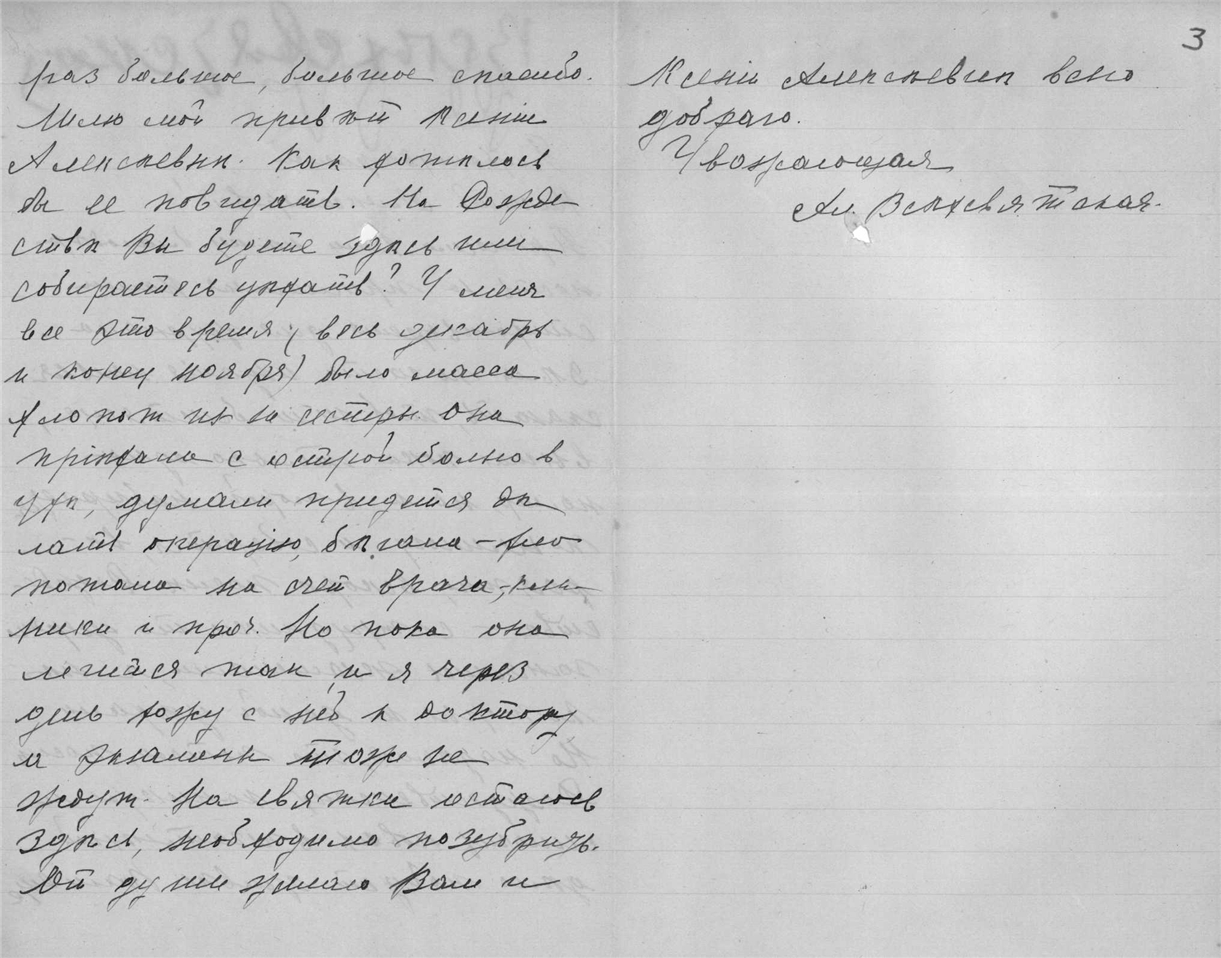 раз большое, большое спасибо.
Шлю мой привѣт Ксеніи
Алексѣевнѣ. Как хотѣлось
бы ее повидать. На Рожде
ствѣ Вы будете здѣсь или
собираетесь уѣхать? У меня
все это время (весь декабрь
и конец ноября) было масса
хлопот из за сестры. Она
пріѣхала с острой болью в
ухѣ, думали придется дѣ
лать операцію, бѣгала – хло
потала на счет врача, кли-
ники и проч. Но пока она
лечится так, и я через
день хожу с ней к доктору
а экзамены тоже не
ждут. На святки остаюсь
здѣсь, необходимо позубрить.
От души желаю Вам и
3
Ксеніи Алексѣевнѣ всего
добраго.
Уважающая
Ал. Всѣхсвятская.